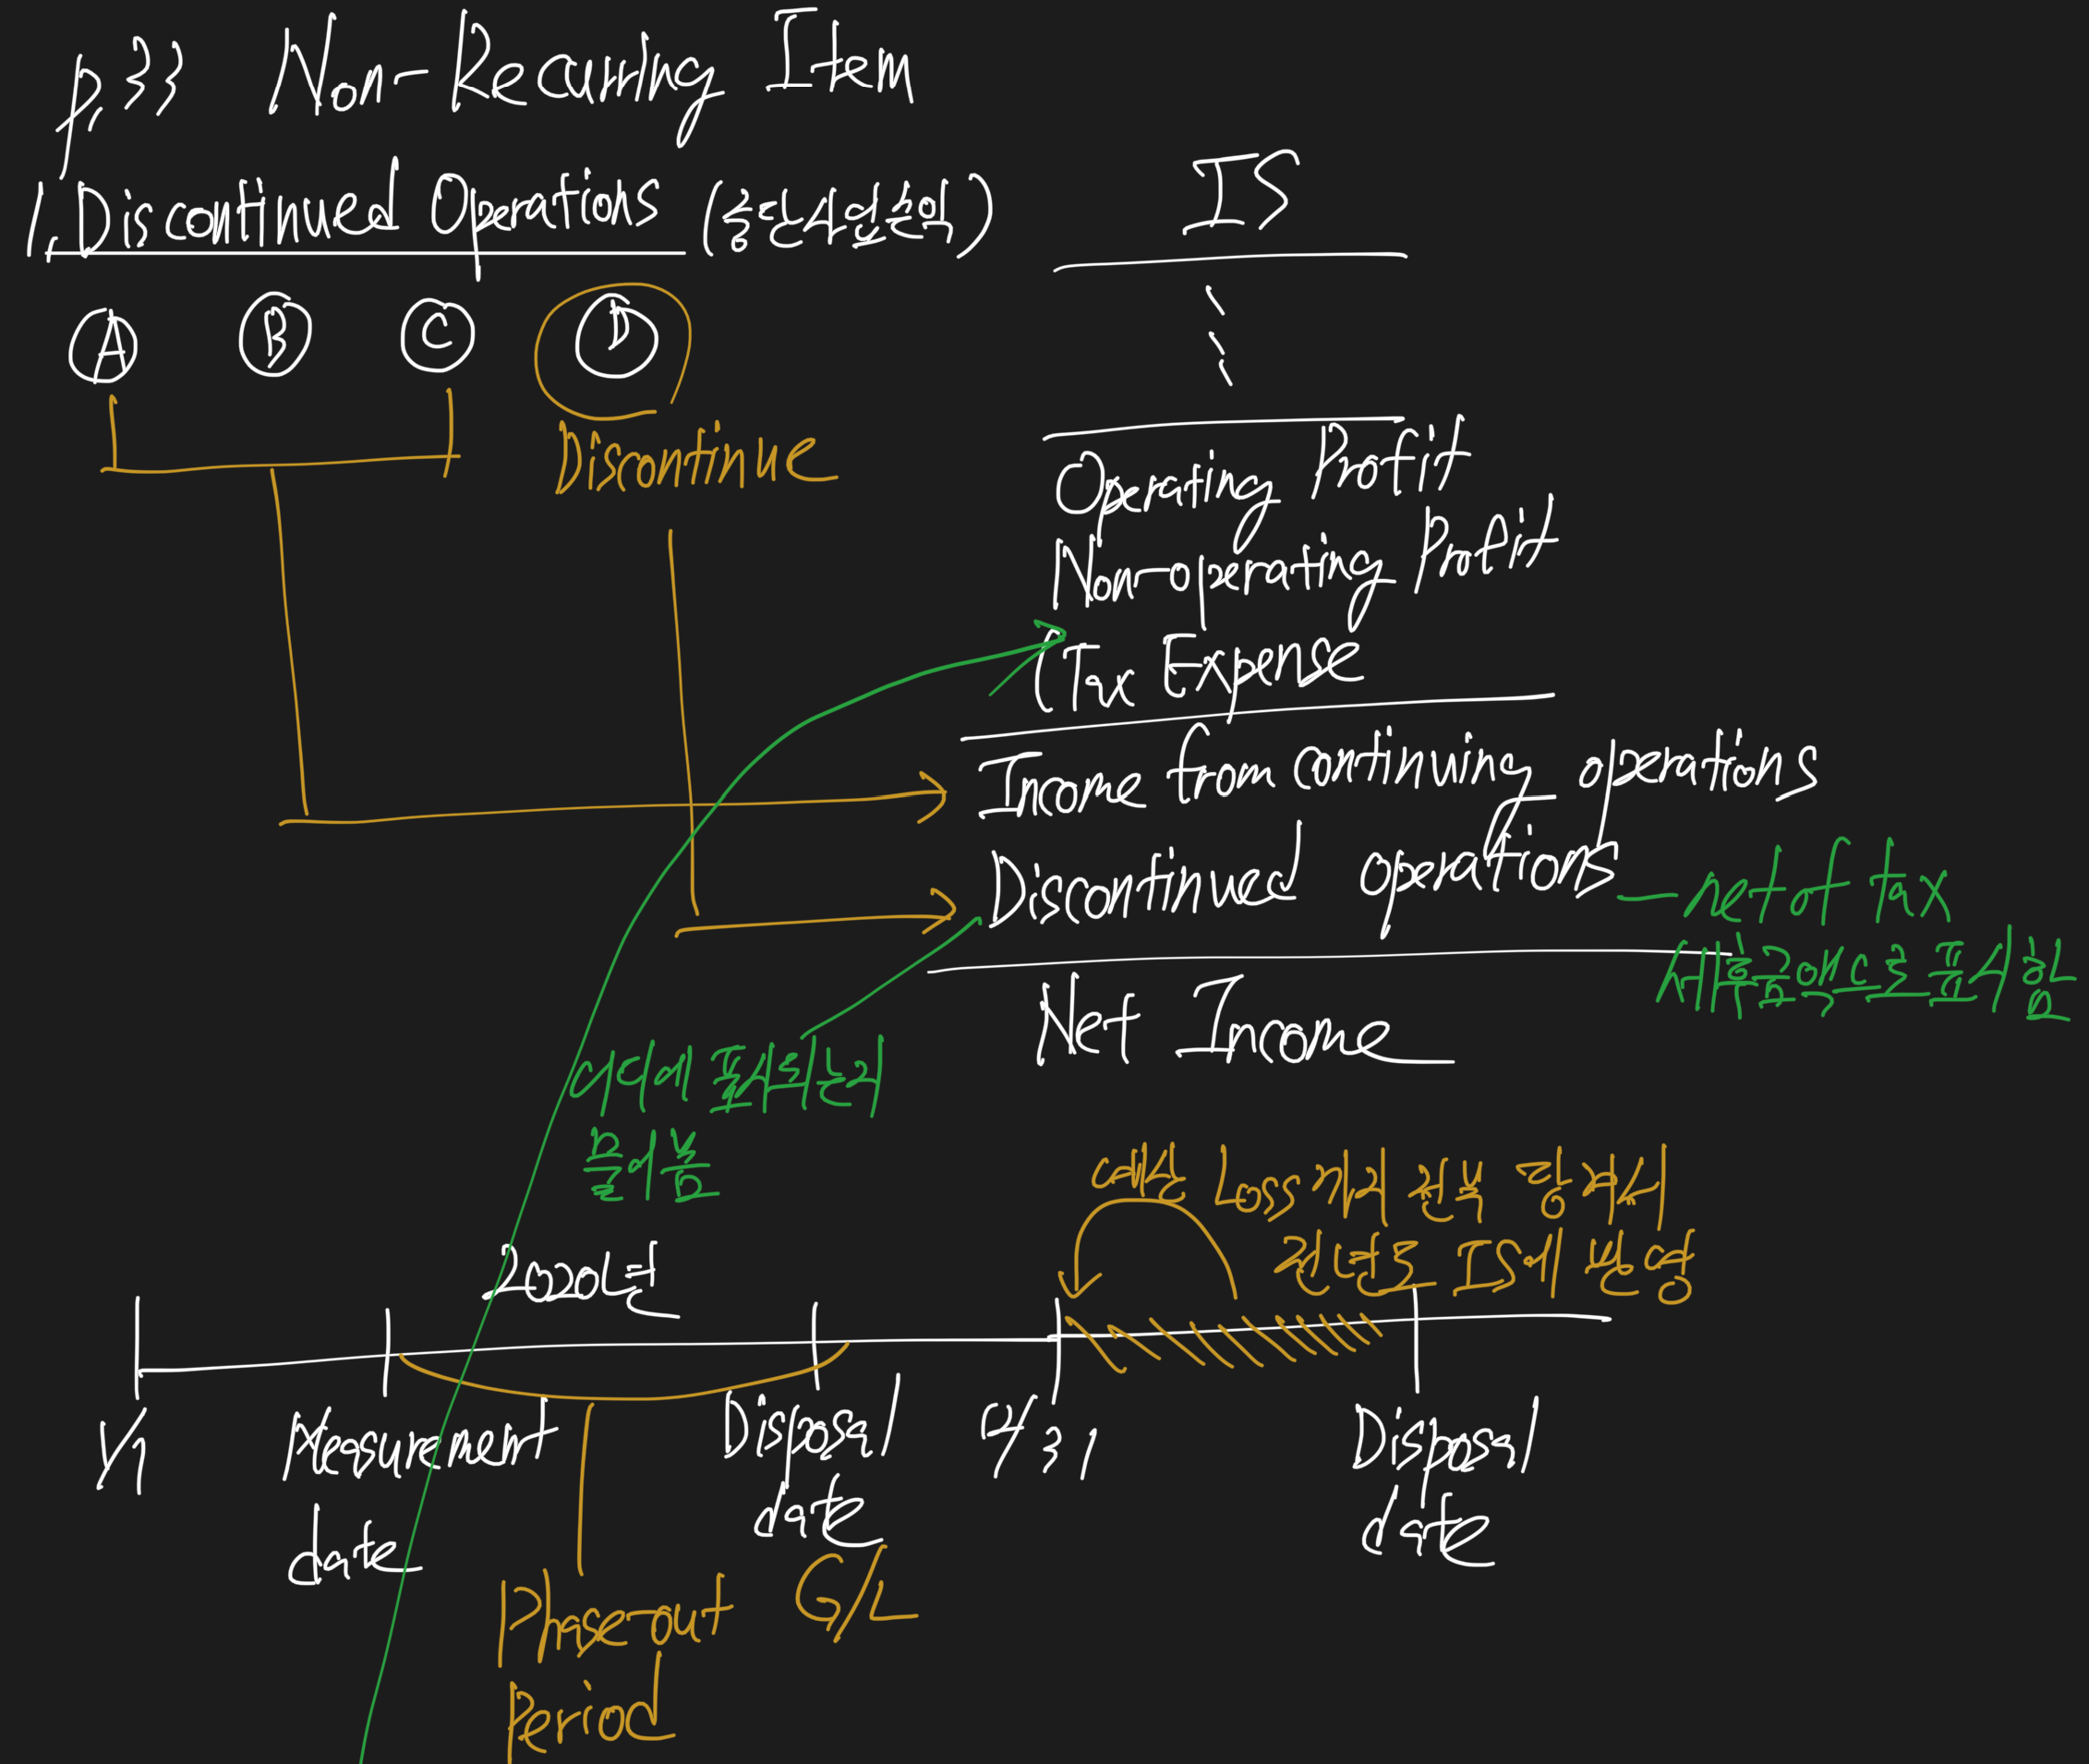 p.33 Non-Recurring Item
1. Discontinued Operations (중단사업손익)
A B C D
Discontinue
IS
Operating Profit
Non-operating Profit
(Tax Expense
Income from continuing operations
Discontinued operations
net of tax
세후금액으로 표시함
Net Income
어디에 표시되는지
물어봄
예상 Loss까지 전부 땡겨서
전년도 IS에 반영
2020년
1/1
Measurement
date
Disposal
date
12/31
Disposal
date
Phase-out
Period
G/L